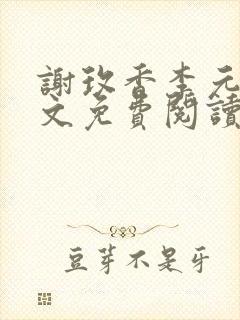 謝玖香李元
文免費閱讀
豆芽不是牙